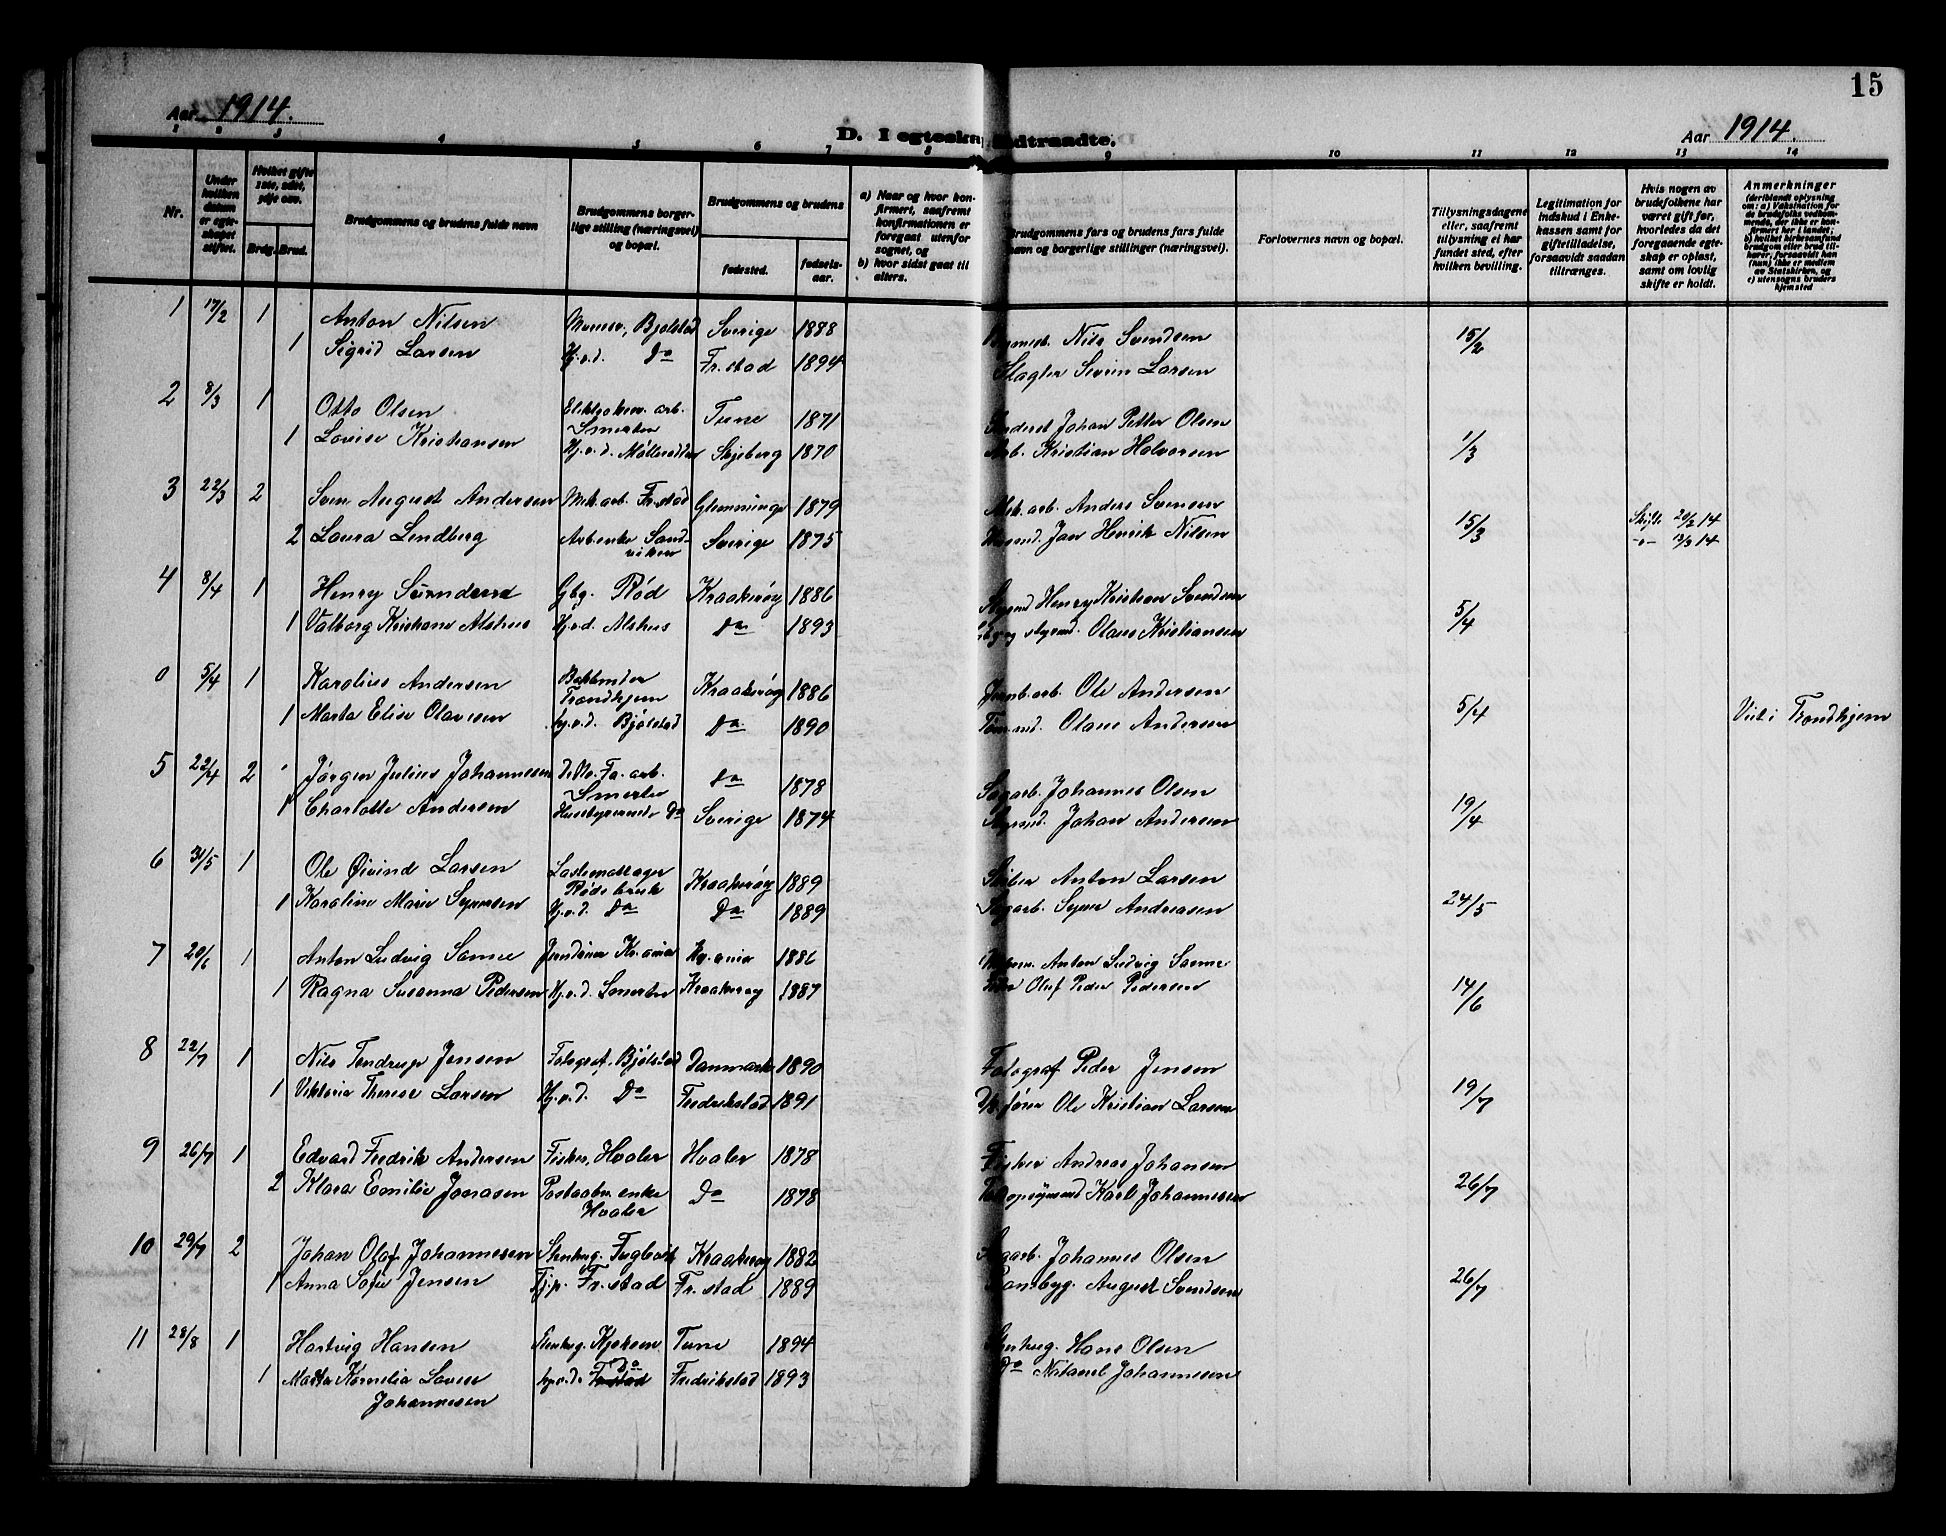 15
Aar 1914.
D. I egteskap indtraadte.
Aar 1914.
1 2 3 4 5 6 7 8 9 10 11 12 13 14
Nr.
Under hvilken datum er egteskapet stiftet.
Hvilket gifte 1ste, 2det, 3dje osv.
Brdg. Brud.
Brudgommens og brudens fulde navn
Brudgommens borgerlige stilling (næringsvei) og bopæl.
Brudgommens og brudens
fødested.
fødselsaar.
a) Naar og hvor konfirmert, saafremt konfirmationen er foregaat utenfor sognet, og
b) hvor sidst gaat til alters.
Brudgommens fars og brudens fars fulde navn og borgerlige stillinger (næringsvei).
Forlovernes navn og bopæl.
Tillysningsdagene eller, saafremt tillysning ei har fundet sted, efter hvilken bevilling.
Legitimation for indskud i Enkekassen samt for giftetilladelse, forsaavidt saadan tiltrænges.
Hvis nogen av brudefolkene har været gift før, hvorledes da det foregaaende egteskap er opløst, samt om lovlig skifte er holdt.
Anmerkninger (deriblandt oplysning om: a) Vaksination for de brudefolks vedkommende, der ikke er konfirmert her i landet, b) hvilket kirkesamfund brudgom eller brud tilhører, forsaavidt han (hun) ikke er medlem av Statskirken, og c) utensogns bruders hjemsted
1 17/2 1 Anton Nilsen Murer, Bjølstad Sverige 1888 Nils Svendsen 15/2
1 Sigrid Larsen Hj.v.d. Do Fr.stad 1894 Slagter Severin Larsen
2 8/3 1 Otto Olsen arb. Smertu Tune 1871 Johan Petter Olsen 1/3
1 Lovise Kristiansen Hj.v.d. Skjeberg 1870 Arb. Kristian Halvorsen
3 22/3 2 Sven August Andersen Mek.arb. Fr.stad Glemminge 1879 Mek.arb. Anders Svensen 15/3 Skifte 20/2 14
2 Laura Lindberg Arb.enke Sandviken Sverige 1875 Jan Henrik Nilsen -"- 12/3 14
4 8/4 1 Henry Svendsen Gbg. Rød Kraakerøy 1886 Styrmd Henry Kristian Svendsen 5/4
1 Valborg Kristiane Alshus Hj.v.d. Alshus Do 1893 Olaus Kristiansen
0 5/4 1 Karolius Andersen Bokbinder Trondhjem Kraakerøy 1886 Ole Andersen 5/4 Viet i Trondhjem
1 Marta Elise Olavesen hj.v.d. Bjølstad Do 1890 Tømmd. Olaus Andersen
5 22/4 2 Jørgen Julius Johannesen arb. Smertu Do 1878 Sagarb. Johannes Olsen 19/4
1 Charlotte Andersen Husbestyrerinde Do Sverige 1874 Johan Andersen
6 31/5 1 Ole Øivind Larsen Lastemottager Røds bruk Kraakerøy 1889 Anton Larsen 24/5
1 Karoline Marie Syversen Hj.v.d. Do Do 1889 Sagarb. Syver Andreasen
7 20/6 1 Anton Ludvig Sanne Kr.ania Kr.ania 1886 Anton Ludvig Sanne 14/6
1 Ragna Susanna Pedersen Hj.v.d. Smertu Kraakerøy 1887 Oluf Peder Pedersen
8 22/7 1 Nils Tendrup Jensen Fotograf. Bjølstad Danmark 1890 Fotograf Peder Jensen 19/7
1 Viktoria Therese Larsen Hj.v.d. Do Fredrikstad 1891 Ole Kristian Larsen
9 26/7 1 Edvard Fredrik Andersen Fisker, Hvaler Hvaler 1878 Fisker Andreas Johansen 26/7
2 Klara Emilie Jonasen Postaabn. enke Hvaler Do 1878 Karl Johannesen
10 29/7 2 Johan Olaf Johannesen Stenhug. Fuglevik Kraakerøy 1882 Sagarb. Johannes Olsen 26/7
1 Anna Sofie Jensen Tj.p. Fr.stad Fr.stad 1889 August Svendsen
11 28/8 1 Hartvig Hansen Stenhug. Kjøkøen Tune 1894 Stenhug. Hans Olsen
1 Marta Kornelia Lovise hj.v.d. Do Fr.stad Fredrikstad 1893 Do Nilanel Johannesen
Johannesen